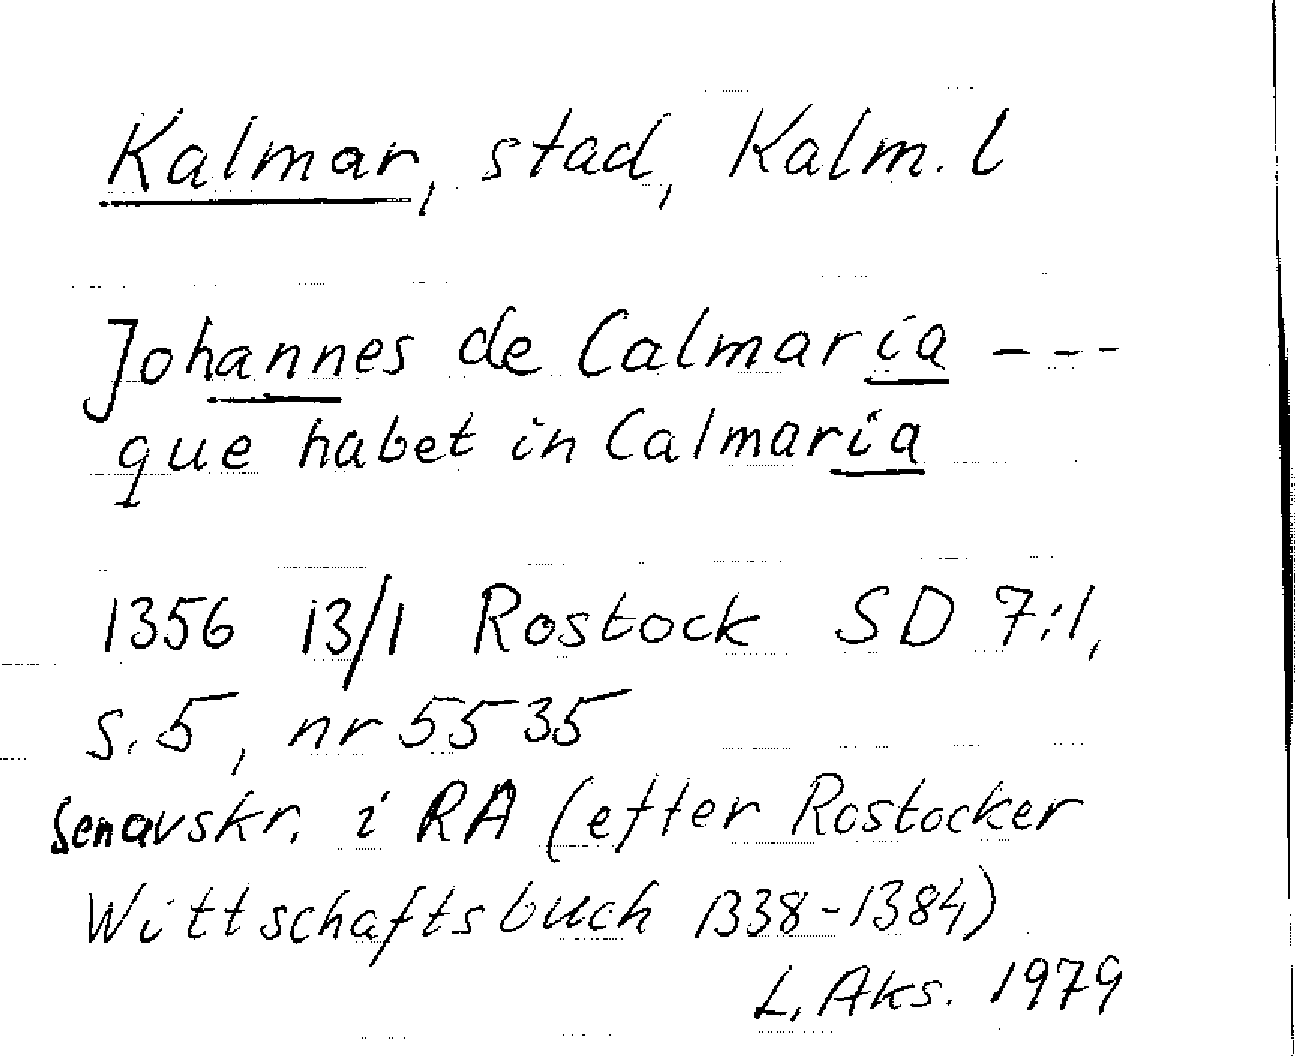 Kalmar, stad, Kalm. l
Johannes de Calmaria ---
que habet in Calmaria
1356 13/1 Rostock SD 7:1,
s. 5, nr 5535
Senavskr. i RA (efter Rostocker
Wittschaftsbuch 1338-1384)
L. Aks. 1979